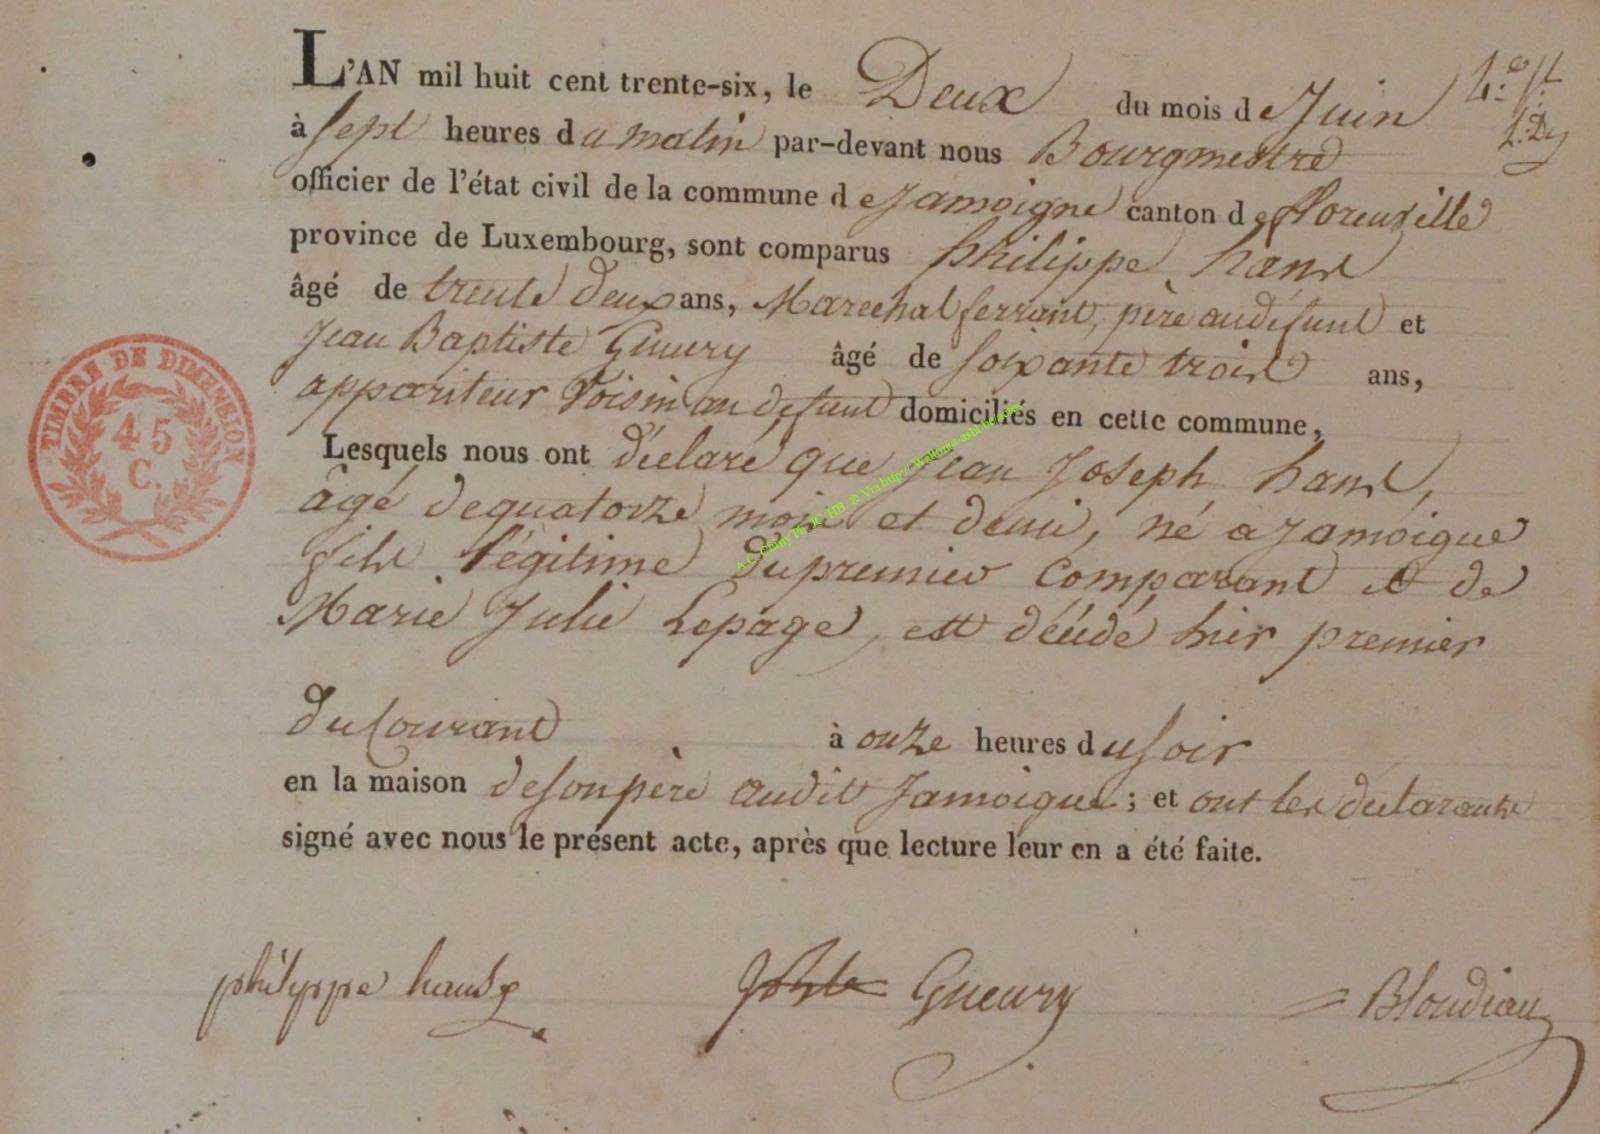 L'AN mil huit cent trente-six, le Deux du mois de Juin
à sept heures du matin par-devant nous Bourgmestre
officier de l'état civil de la commune de Jamoigne canton de florenville
province de Luxembourg, sont comparus philippe hans
âgé de trente deux ans, Marechal ferrant, père au défunt et
Jean Baptiste Gueury âgé de soixante trois ans,
appariteur Voisin au défunt domiciliés en cette commune,
Lesquels nous ont déclaré que Jean Joseph hans,
âgé de quatorze mois et demi, né a Jamoigne
fils légitime du premier Comparant et de
Marie Julie Lepage, est décédé hier premier
du Courant à onze heures du soir
en la maison de son père audit Jamoigne ; et ont les déclarants
signé avec nous le présent acte, après que lecture leur en a été faite.
TIMBRE DE DIMENSION
45
C.
philyppe hans
Gueury
Bloudiau